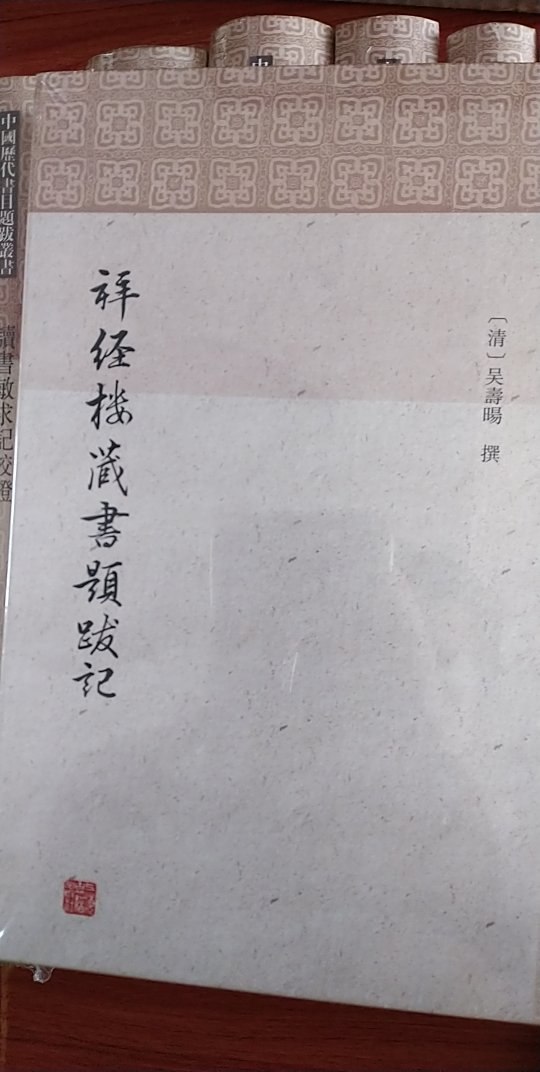 拜经楼藏書題跋記
〔清〕吴壽暘 撰
中國歷代書目題跋叢書
讀書敏求記校證
中